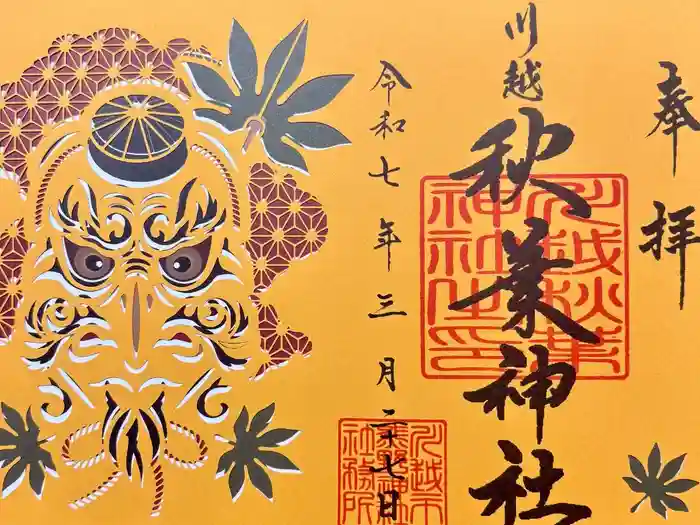 奉拝
川越
秋葉神社
川越秋葉神社之印
令和七年三月二十七日
川越市
熊野神社
社務所